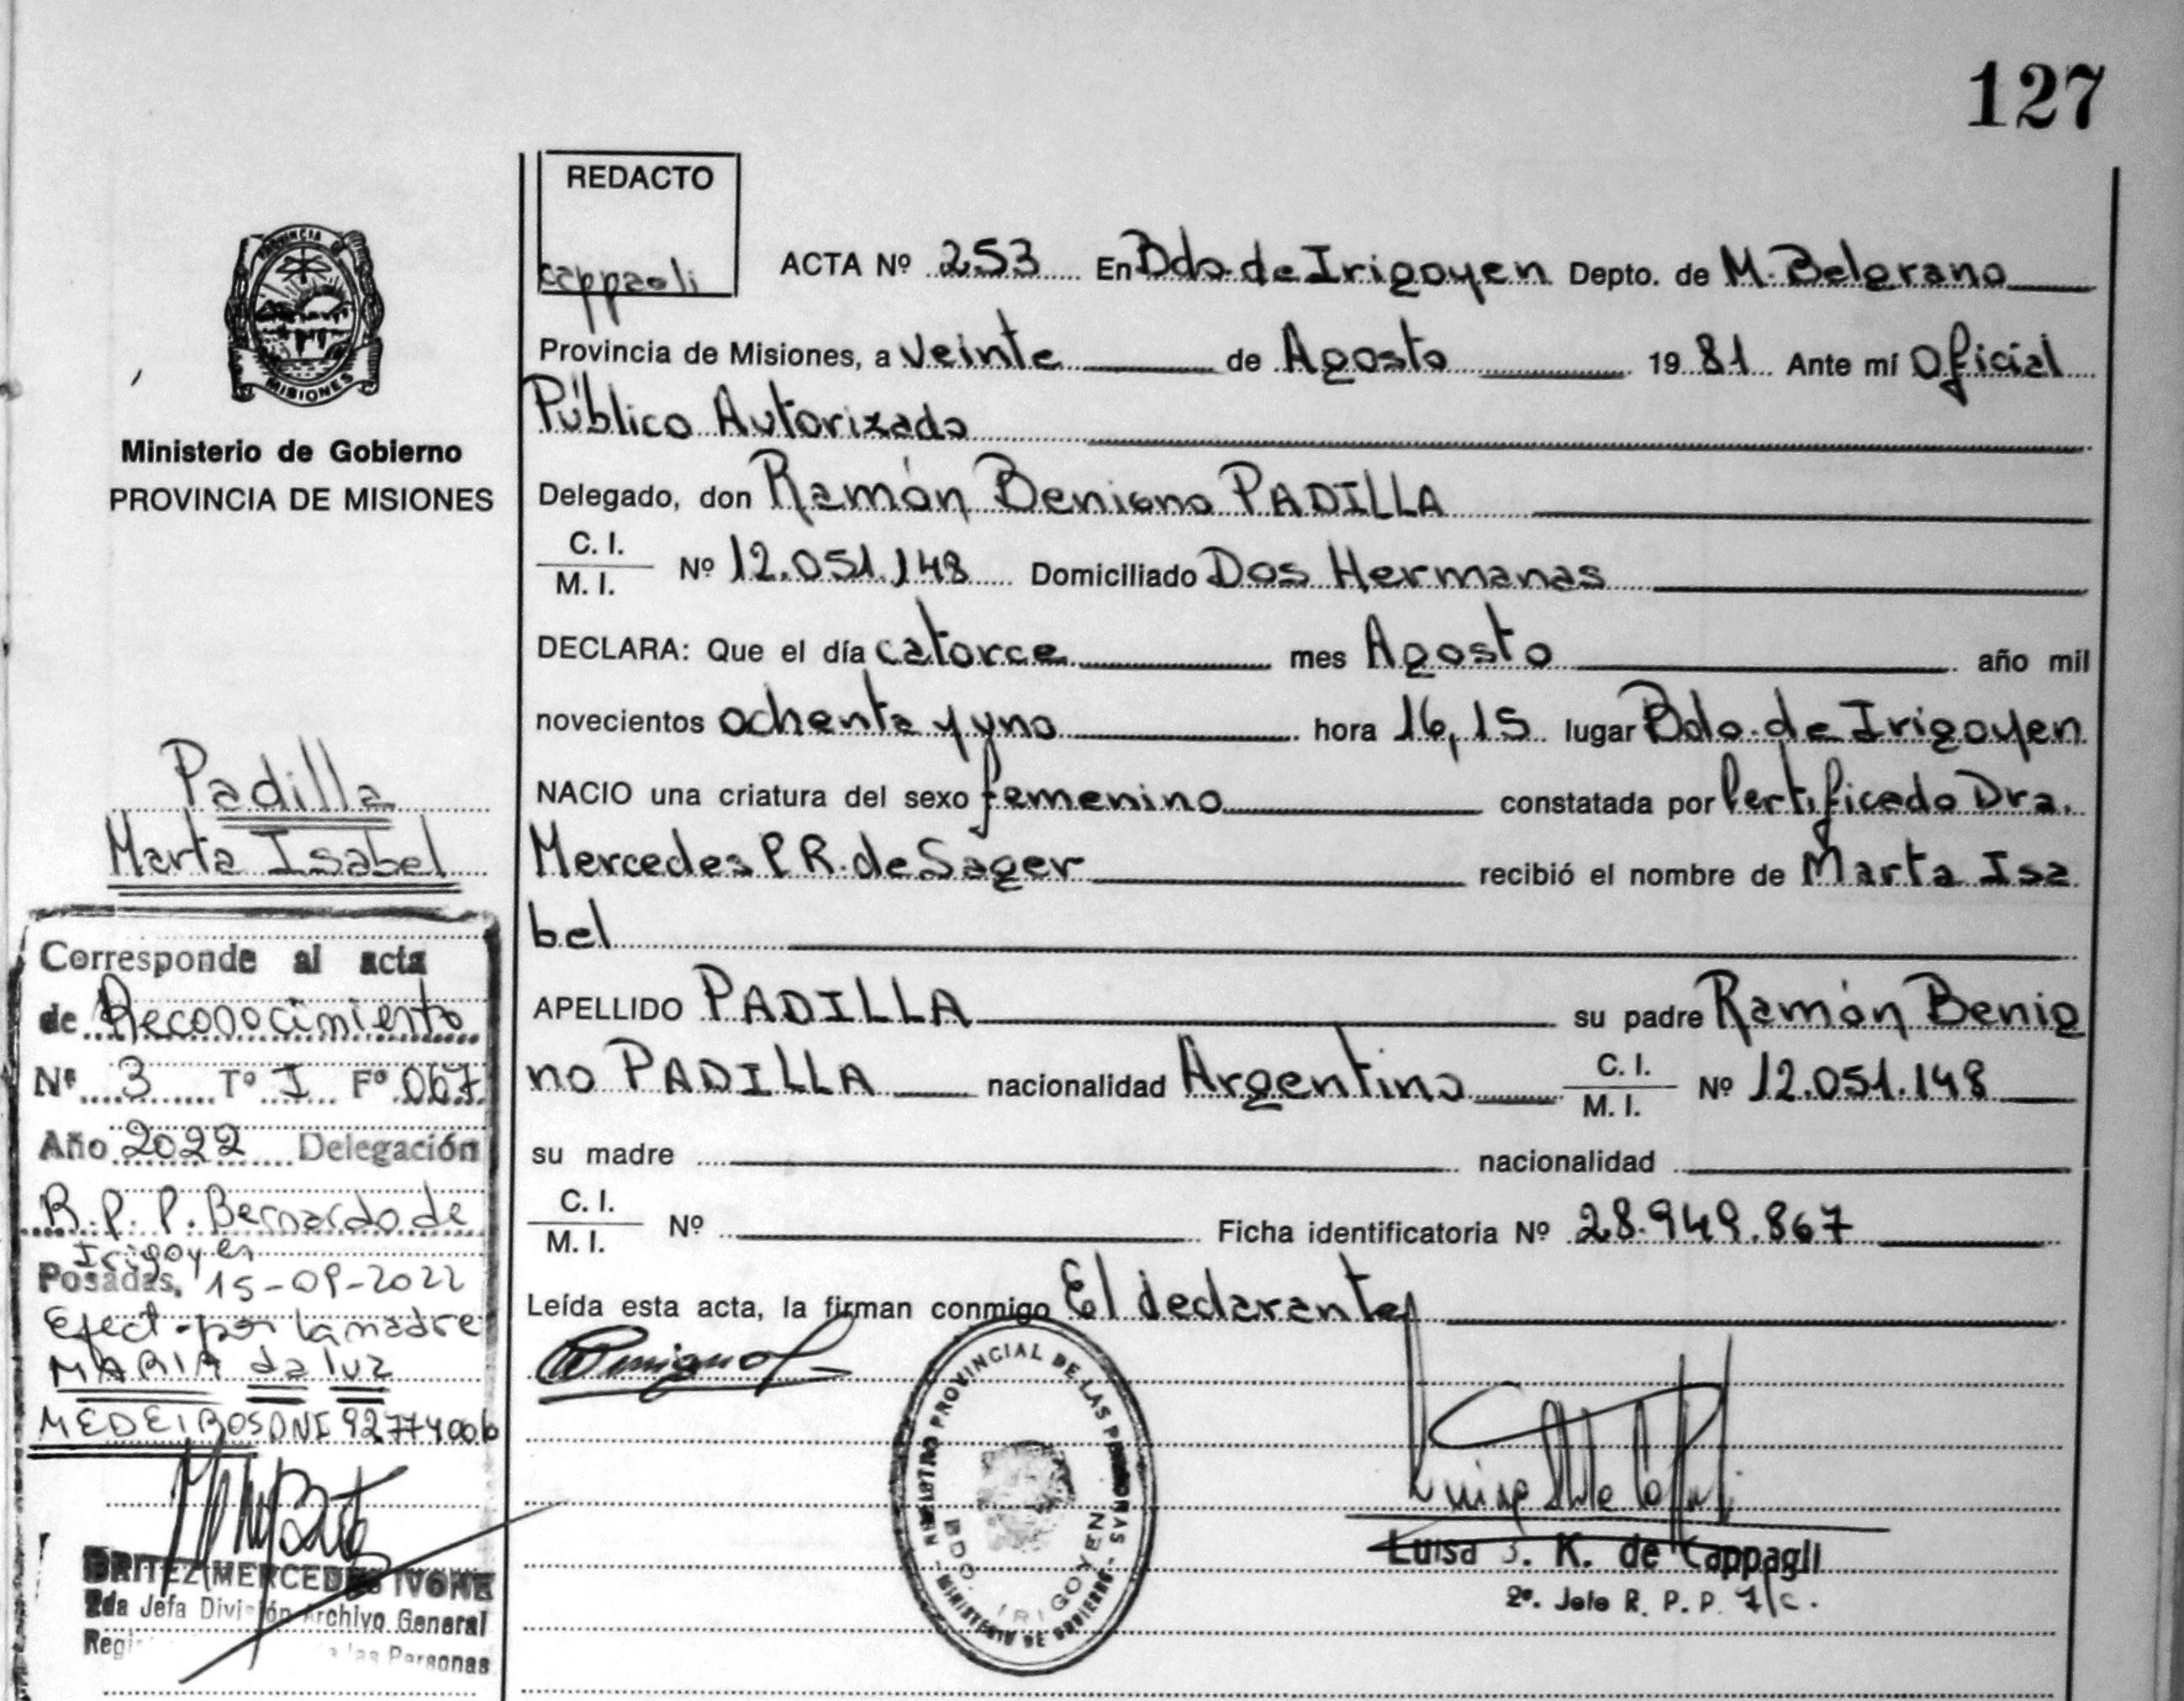 127
REDACTO
Cappagli
ACTA Nº 253 En Bdo. de Irigoyen Depto. de M. Belgrano
Provincia de Misiones, a Veinte de Agosto 1981 Ante mí Oficial
Público Autorizado
Delegado, don Ramón Benigno PADILLA
C. I.
M. I. Nº 12.051.148 Domiciliado Dos Hermanas
DECLARA: Que el día catorce mes Agosto año mil
novecientos ochenta y uno hora 16,15 lugar Bdo. de Irigoyen
NACIO una criatura del sexo femenino constatada por Certificado Dra.
Mercedes P.R. de Sager recibió el nombre de Marta Isa
bel
APELLIDO PADILLA su padre Ramón Benig
no PADILLA nacionalidad Argentino C. I.
M. I. Nº 12.051.148
su madre nacionalidad
C. I.
M. I. Nº Ficha identificatoria Nº 28.949.867
Leída esta acta, la firman conmigo El declarante
REGISTRO PROVINCIAL DE LAS PERSONAS
BDO. IRIGOYEN
MINISTERIO DE GOBIERNO
Luisa S. K. de Cappagli
2º. Jefe R. P. P. 7/c.
PROVINCIA DE
MISIONES
Ministerio de Gobierno
PROVINCIA DE MISIONES
Padilla
Marta Isabel
Corresponde al acta
de Reconocimiento
Nº 3 Tº I Fº 067
Año 2022 Delegación
R. P. P. Bernardo de
Irigoyen
Posadas, 15-09-2022
Efect. por la madre
MARIA da luz
MEDEIROS DNI 92774006
BRITEZ MERCEDES IVONE
2da Jefa División Archivo General
Regi las Personas